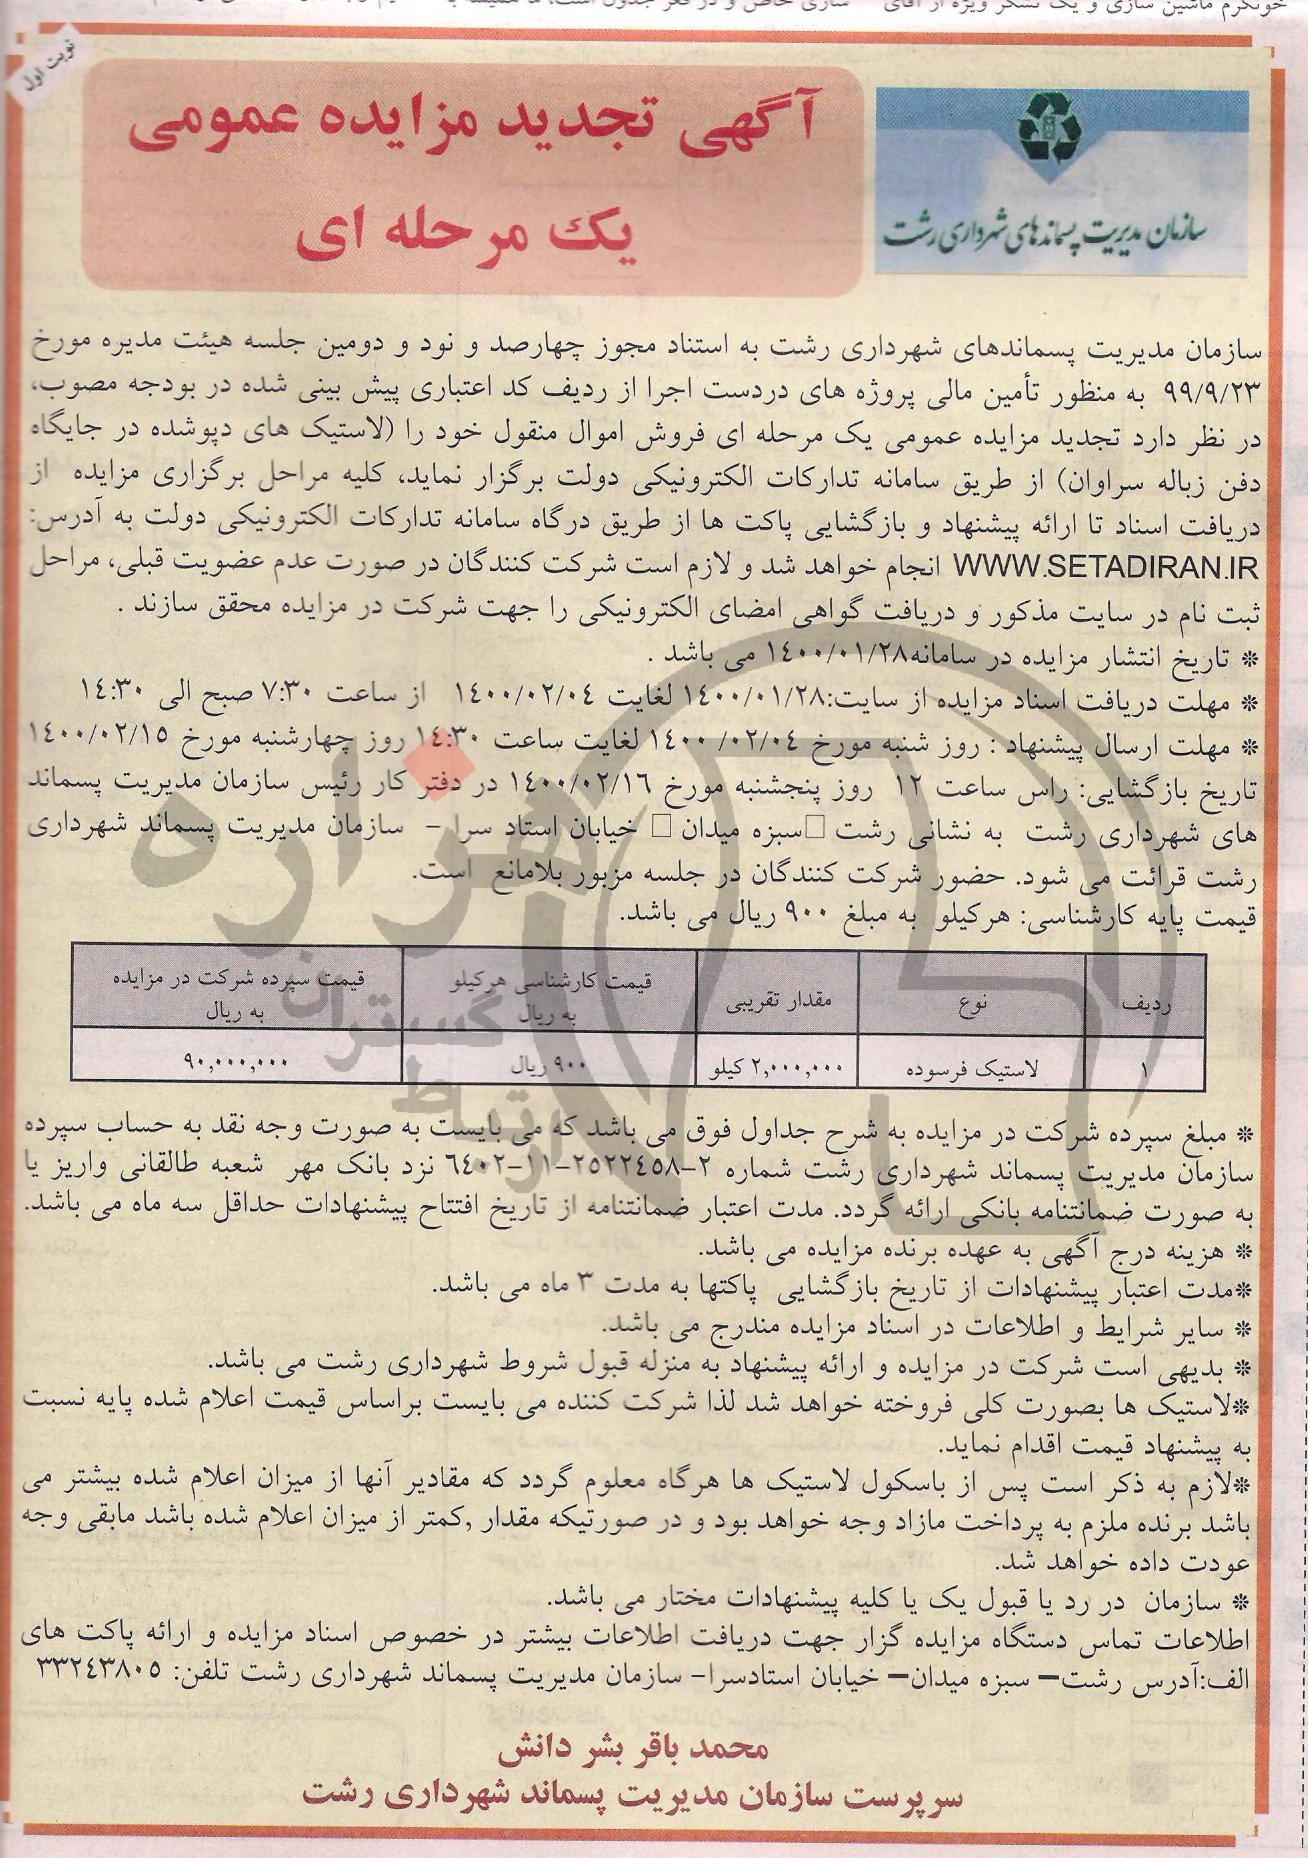 نوبت اول
سازمان مدیریت پسماندهای شهرداری رشت
آگهی تجدید مزایده عمومی
یک مرحله ای
سازمان مدیریت پسماندهای شهرداری رشت به استناد مجوز چهارصد و نود و دومین جلسه هیئت مدیره مورخ
۹۹/۹/۲۳ به منظور تأمین مالی پروژه های دردست اجرا از ردیف کد اعتباری پیش بینی شده در بودجه مصوب،
در نظر دارد تجدید مزایده عمومی یک مرحله ای فروش اموال منقول خود را (لاستیک های دپوشده در جایگاه
دفن زباله سراوان) از طریق سامانه تدارکات الکترونیکی دولت برگزار نماید، کلیه مراحل برگزاری مزایده از
دریافت اسناد تا ارائه پیشنهاد و بازگشایی پاکت ها از طریق درگاه سامانه تدارکات الکترونیکی دولت به آدرس:
WWW.SETADIRAN.IR انجام خواهد شد و لازم است شرکت کنندگان در صورت عدم عضویت قبلی، مراحل
ثبت نام در سایت مذکور و دریافت گواهی امضای الکترونیکی را جهت شرکت در مزایده محقق سازند .
* تاریخ انتشار مزایده در سامانه۱۴۰۰/۰۱/۲۸ می باشد .
* مهلت دریافت اسناد مزایده از سایت:۱۴۰۰/۰۱/۲۸ لغایت ۱۴۰۰/۰۲/۰۴ از ساعت ۷:۳۰ صبح الی ۱۴:۳۰
* مهلت ارسال پیشنهاد : روز شنبه مورخ ۱۴۰۰/۰۲/۰۴ لغایت ساعت ۱۴:۳۰ روز چهارشنبه مورخ ۱۴۰۰/۰۲/۱۵
تاریخ بازگشایی: راس ساعت ۱۲ روز پنجشنبه مورخ ۱۴۰۰/۰۲/۱۶ در دفتر کار رئیس سازمان مدیریت پسماند
های شهرداری رشت به نشانی رشت □سبزه میدان □ خیابان استاد سرا – سازمان مدیریت پسماند شهرداری
رشت قرائت می شود. حضور شرکت کنندگان در جلسه مزبور بلامانع است.
قیمت پایه کارشناسی: هرکیلو به مبلغ ۹۰۰ ریال می باشد.
ردیف نوع مقدار تقریبی قیمت کارشناسی هرکیلو به ریال قیمت سپرده شرکت در مزایده به ریال
۱ لاستیک فرسوده ۲,۰۰۰,۰۰۰ کیلو ۹۰۰ ریال ۹۰,۰۰۰,۰۰۰
* مبلغ سپرده شرکت در مزایده به شرح جداول فوق می باشد که می بایست به صورت وجه نقد به حساب سپرده
سازمان مدیریت پسماند شهرداری رشت شماره ۲-۲۵۲۲۴۵۸-۱۱-۶۴۰۲ نزد بانک مهر شعبه طالقانی واریز یا
به صورت ضمانتنامه بانکی ارائه گردد. مدت اعتبار ضمانتنامه از تاریخ افتتاح پیشنهادات حداقل سه ماه می باشد.
* هزینه درج آگهی به عهده برنده مزایده می باشد.
*مدت اعتبار پیشنهادات از تاریخ بازگشایی پاکتها به مدت ۳ ماه می باشد.
* سایر شرایط و اطلاعات در اسناد مزایده مندرج می باشد.
* بدیهی است شرکت در مزایده و ارائه پیشنهاد به منزله قبول شروط شهرداری رشت می باشد.
*لاستیک ها بصورت کلی فروخته خواهد شد لذا شرکت کننده می بایست براساس قیمت اعلام شده پایه نسبت
به پیشنهاد قیمت اقدام نماید.
*لازم به ذکر است پس از باسکول لاستیک ها هرگاه معلوم گردد که مقادیر آنها از میزان اعلام شده بیشتر می
باشد برنده ملزم به پرداخت مازاد وجه خواهد بود و در صورتیکه مقدار ,کمتر از میزان اعلام شده باشد مابقی وجه
عودت داده خواهد شد.
* سازمان در رد یا قبول یک یا کلیه پیشنهادات مختار می باشد.
اطلاعات تماس دستگاه مزایده گزار جهت دریافت اطلاعات بیشتر در خصوص اسناد مزایده و ارائه پاکت های
الف:آدرس رشت– سبزه میدان– خیابان استادسرا- سازمان مدیریت پسماند شهرداری رشت تلفن: ۳۳۲۴۳۸۰۵
محمد باقر بشر دانش
سرپرست سازمان مدیریت پسماند شهرداری رشت